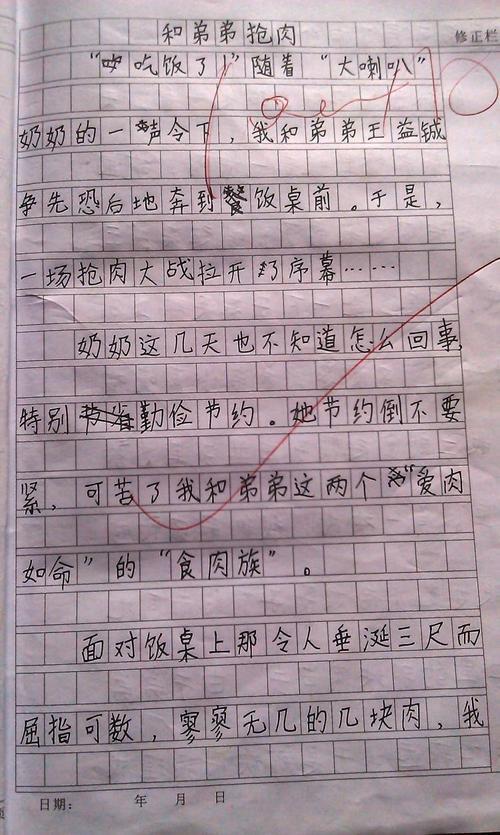 和弟弟抢肉
修正栏
“吃饭了！”随着“大喇叭”
奶奶的一声令下，我和弟弟王益铖
争先恐后地奔到餐饭桌前。于是，
一场抢肉大战拉开了序幕……
奶奶这几天也不知道怎么回事，
特别勤俭节约。她节约倒不要
紧，可苦了我和弟弟这两个“爱肉
如命”的“食肉族”。
面对饭桌上那令人垂涎三尺而
屈指可数，寥寥无几的几块肉，我
日期： 年 月 日